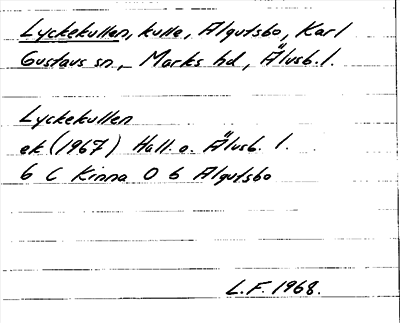 Lyckekullen, kulle, Algutsbo, Karl
Gustavs sn., Marks hd, Älvsb. l.
Lyckekullen
ek (1967) Hall. o. Älvsb. l.
6 C Kinna 0 6 Algutsbo
L.F. 1968.